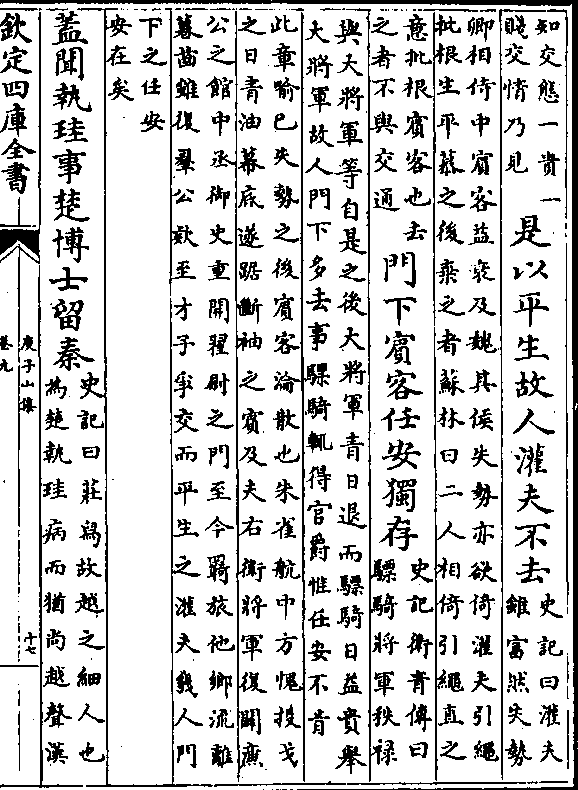 知交態一貴一
賤交情乃見
是以平生故人灌夫不去
史記曰灌夫
雖富然失勢
卿相侍中賓客益衰及魏其侯失勢亦欲倚灌夫引繩
批根生平慕之後棄之者蘇林曰二人相倚引繩直之
意批根賓客也去
之者不與交通
門下賓客任安獨存
史記衛青傳曰
驃騎將軍秩禄
與大將軍等自是之後大將軍青日退而驃騎日益貴舉
大將軍故人門下多去事驃騎輒得官爵惟任安不肯
此章喻已失勢之後賓客淪散也朱雀航中方愧投戈
之日青油幕底遂踞斷袖之賓及夫右衛將軍復開廉
公之館中丞御史重開翟尉之門至今羈旅他鄉流離
暮齒雖復羣公欵至才子爭交而平生之灌夫幾人門
下之任安
安在矣
蓋聞執珪事楚博士留秦
史記曰莊舄故越之細人也
為楚執珪病而猶尚越聲漢
欽定四庫全書
庾子山集
卷九
十七